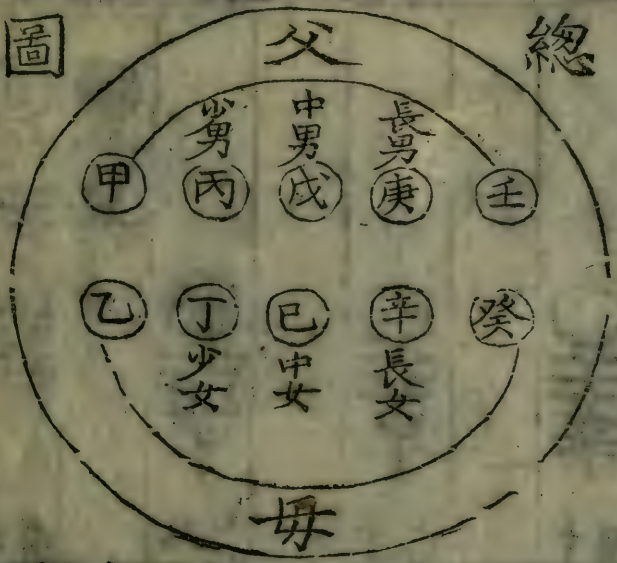 總圖
父
長男 中男 少男
壬 庚 戊 丙 甲
癸 辛 已 丁 乙
長女 中女 少女
毋